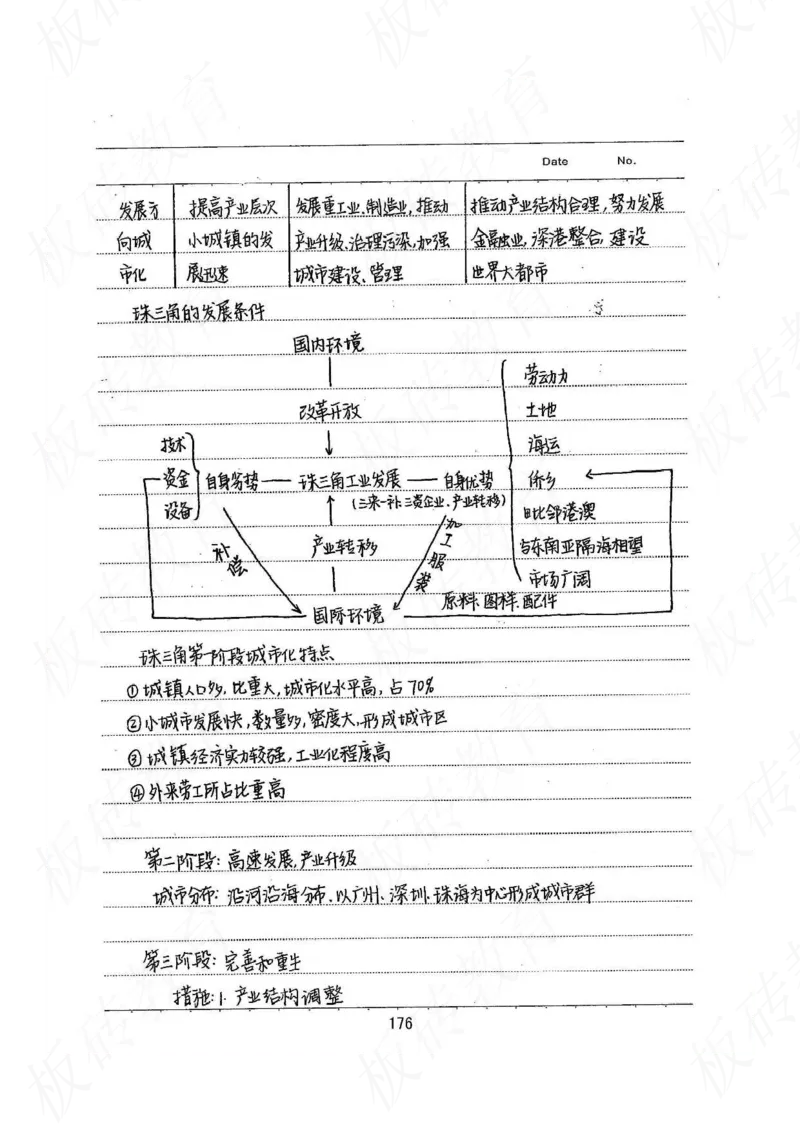 Date No.
发展方 提高产业层次 发展重工业、制造业，推动 推动产业结构合理，努力发展
向城 小城镇的发 产业升级、治理污染，加强 金融业，深港整合，建设
市化 展迅速 城市建设、管理 世界大都市
珠三角的发展条件
国内环境
劳动力
改革开放 土地
技术 海运
资金 自身劣势 珠三角工业发展 自身优势 侨乡
(三来一补、三资企业、产业转移)
设备 毗邻港澳
补偿 产业转移 加工服装 与东南亚隔海相望
市场广阔
原料、图样、配件
国际环境
珠三角第一阶段城市化特点
①城镇人口多，比重大，城市化水平高，占70%
②小城市发展快，数量多，密度大，形成城市区
③城镇经济实力较强，工业化程度高
④外来劳工所占比重高
第二阶段：高速发展，产业升级
城市分布：沿河沿海分布、以广州、深圳、珠海为中心形成城市群
第三阶段：完善和重生
措施：1. 产业结构调整
176
板砖教育